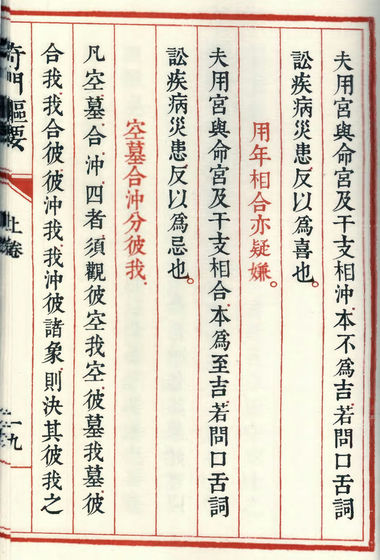 夫用宮與命宮及干支相沖本不爲吉若問口舌詞
訟疾病災患反以爲喜也。
用年相合亦疑嫌。
夫用宮與命宮及干支相合本爲至吉若問口舌詞
訟疾病災患反以爲忌也。
空墓合沖分彼我
凡空墓合沖四者須觀彼空我空彼墓我墓彼
合我我合彼彼沖我我沖彼諸象則決其彼我之
奇門樞要
上卷
一九